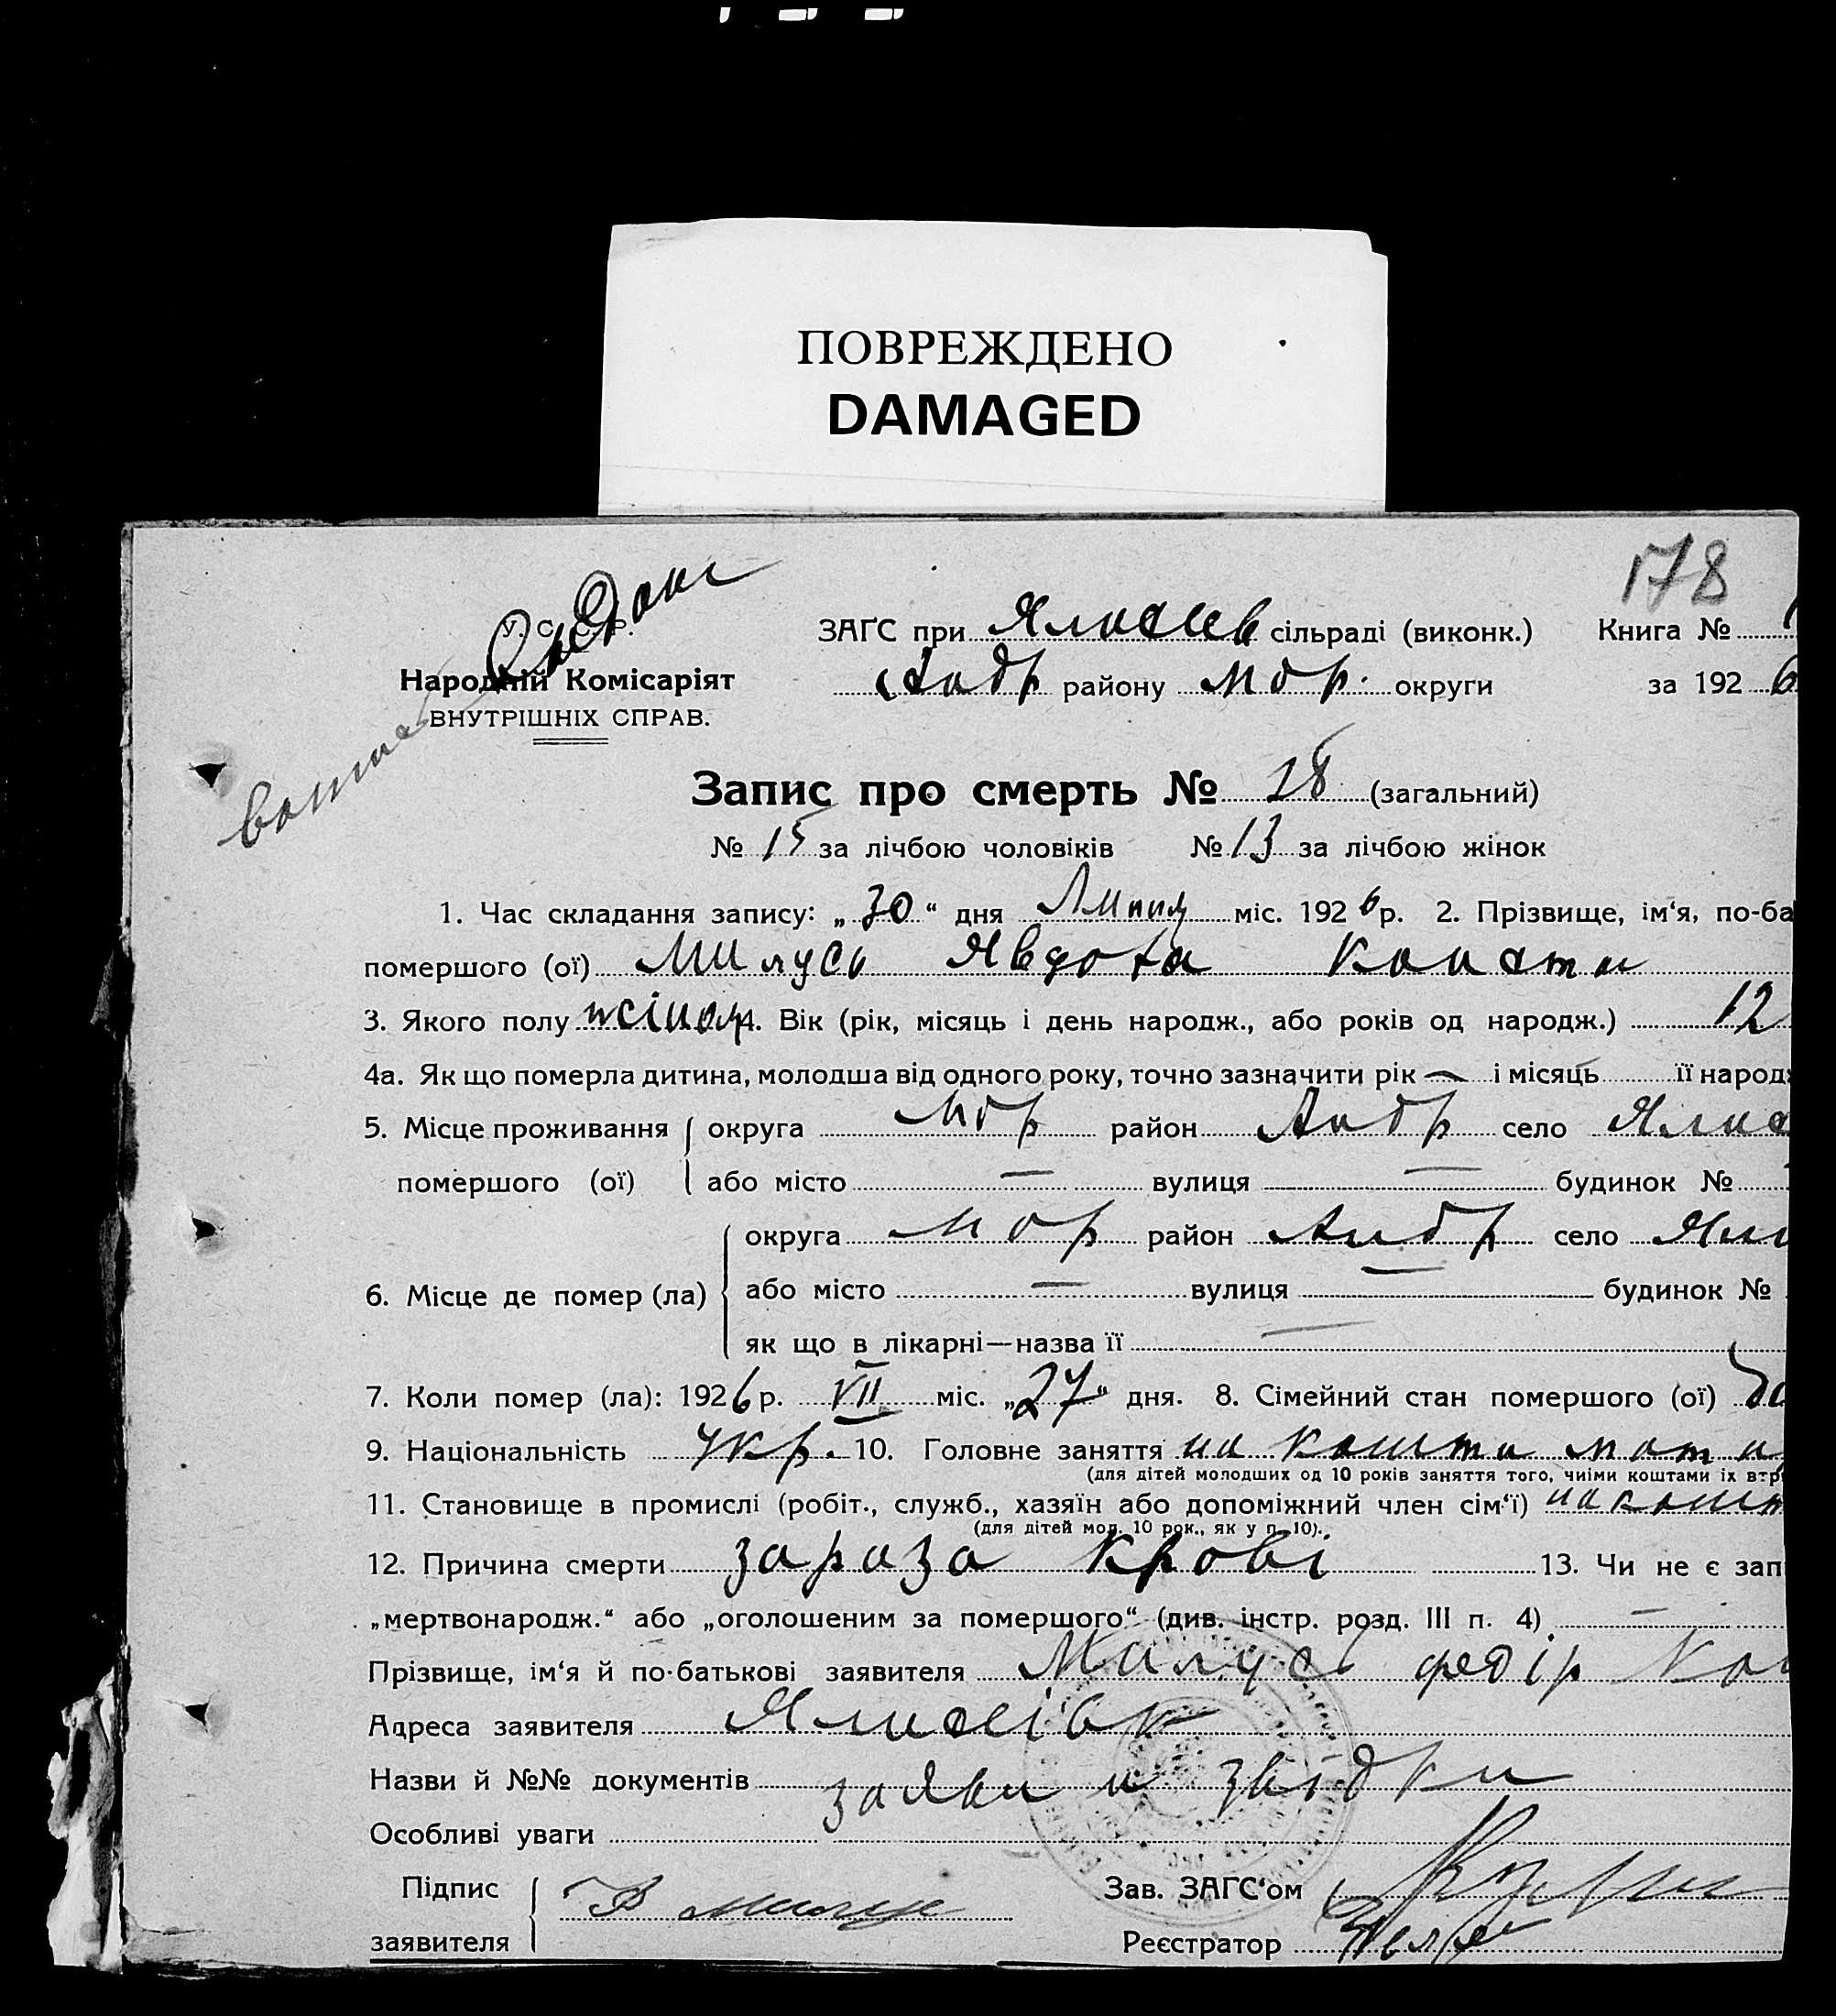 ПОВРЕЖДЕНО
DAMAGED
178
У. С. Р. Р.
Народній Комісаріят
ВНУТРІШНІХ СПРАВ.
ЗАҐС при сільраді (виконк.) Книга №
Андр району Мбр. округи за 1926
Запис про смерть № 28 (загальний)
№ 15 за лічбою чоловіків № 13 за лічбою жінок
1. Час складання запису: „30“ дня Липня міс. 1926 р. 2. Прізвище, ім‘я, по-ба
помершого (ої) Милусь Явдоха Конста
3. Якого полу жіноч. 4. Вік (рік, місяць і день народж., або років од народж.) 12
4а. Як що померла дитина, молодша від одного року, точно зазначити рік — і місяць її народ
5. Місце проживання округа Мбр район Андр село
помершого (ої) або місто — вулиця — будинок №
округа Мбр район Андр село
6. Місце де помер (ла) або місто — вулиця — будинок №
як що в лікарні—назва її —
7. Коли помер (ла): 1926 р. VII міс. „27“ дня. 8. Сімейний стан помершого (ої)
9. Національність Укр. 10. Головне заняття на кошти мати
(для дітей молодших од 10 років заняття того, чиїми коштами їх втр
11. Становище в промислі (робіт., служб., хазяїн або допоміжний член сім‘ї) на кошт
(для дітей мол. 10 рок., як у п. 10).
12. Причина смерти зараза крові 13. Чи не є зап
„мертвонародж.“ або „оголошеним за помершого“ (див. інстр. розд. III п. 4) —
Прізвище, ім‘я й по-батькові заявителя Милусь Федір Кон
Адреса заявителя
Назви й №№ документів заяви и звідки
Особливі уваги
Підпис
заявителя
Зав. ЗАҐС‘ом
Реєстратор